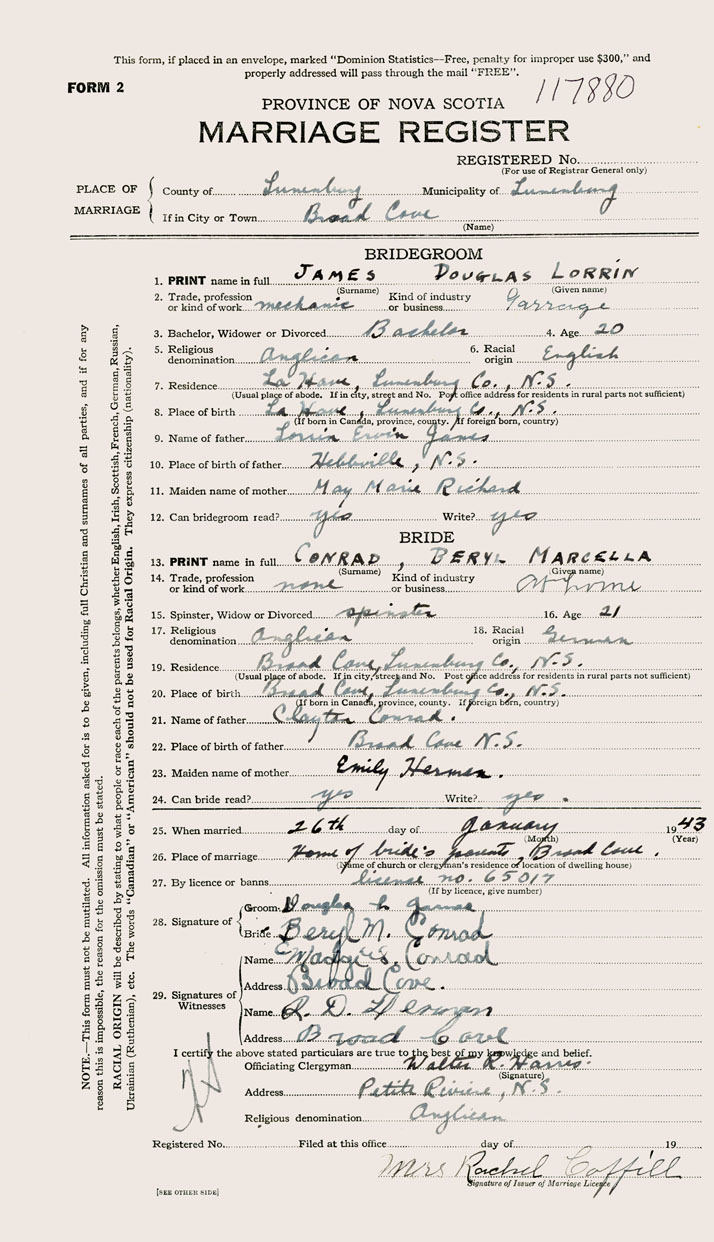 This form, if placed in an envelope, marked "Dominion Statistics—Free, penalty for improper use $300," and
properly addressed will pass through the mail "FREE".
FORM 2
117880
PROVINCE OF NOVA SCOTIA
MARRIAGE REGISTER
REGISTERED No.
(For use of Registrar General only)
PLACE OF MARRIAGE
County of Lunenburg Municipality of Lunenburg
If in City or Town Broad Cove
(Name)
BRIDEGROOM
1. PRINT name in full JAMES DOUGLAS LORRIN
(Surname) (Given name)
2. Trade, profession or kind of work mechanic Kind of industry or business Garrage
3. Bachelor, Widower or Divorced Bachelor 4. Age 20
5. Religious denomination Anglican 6. Racial origin English
7. Residence La Have, Lunenburg Co., N.S.
(Usual place of abode. If in city, street and No. Post office address for residents in rural parts not sufficient)
8. Place of birth La Have, Lunenburg Co., N.S.
(If born in Canada, province, county. If foreign born, country)
9. Name of father Lorrin Ervin James
10. Place of birth of father Hebbville, N.S.
11. Maiden name of mother May Marie Richard
12. Can bridegroom read? yes Write? yes
BRIDE
13. PRINT name in full CONRAD, BERYL MARCELLA
(Surname) (Given name)
14. Trade, profession or kind of work none Kind of industry or business At home
15. Spinster, Widow or Divorced spinster 16. Age 21
17. Religious denomination Anglican 18. Racial origin German
19. Residence Broad Cove, Lunenburg Co., N.S.
(Usual place of abode. If in city, street and No. Post office address for residents in rural parts not sufficient)
20. Place of birth Broad Cove, Lunenburg Co., N.S.
(If born in Canada, province, county. If foreign born, country)
21. Name of father Clayton Conrad.
22. Place of birth of father Broad Cove N.S.
23. Maiden name of mother Emily Herman.
24. Can bride read? yes Write? yes.
25. When married 26th day of January 1943
(Month) (Year)
26. Place of marriage Home of bride's parents, Broad Cove.
(Name of church or clergyman's residence or location of dwelling house)
27. By licence or banns license no. 65017
(If by licence, give number)
28. Signature of
Groom Douglas L James
Bride Beryl M. Conrad
29. Signatures of Witnesses
Name Conrad
Address Broad Cove.
Name R. D. Herman
Address Broad Cove
I certify the above stated particulars are true to the best of my knowledge and belief.
Officiating Clergyman Walter R. Harris.
(Signature)
Address Petite Riviere, N.S.
Religious denomination Anglican
Registered No. Filed at this office day of 19
Mrs Rachel Coffill
Signature of Issuer of Marriage Licence
[SEE OTHER SIDE]
NOTE.—This form must not be mutilated. All information asked for is to be given, including full Christian and surnames of all parties, and if for any
reason this is impossible, the reason for the omission must be stated.
RACIAL ORIGIN will be described by stating to what people or race each of the parents belongs, whether English, Irish, Scottish, French, German, Russian,
Ukrainian (Ruthenian), etc. The words "Canadian" or "American" should not be used for Racial Origin. They express citizenship (nationality).